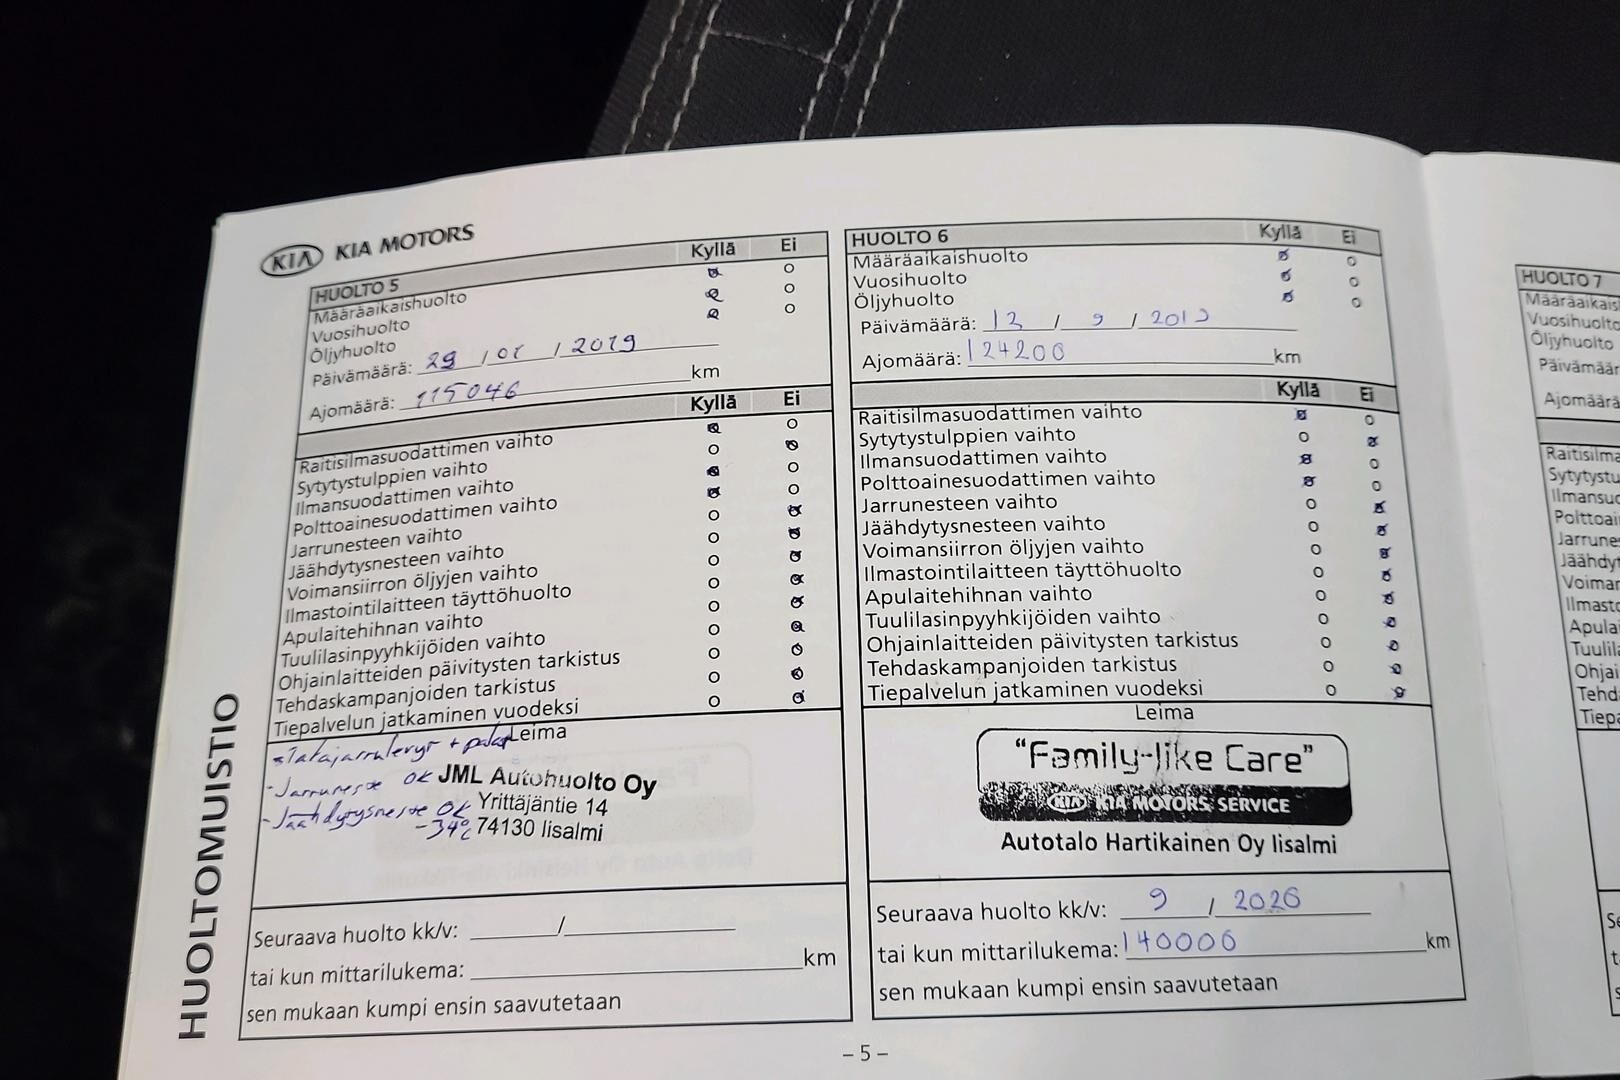 KIA KIA MOTORS
HUOLTOMUISTIO
HUOLTO 5 Kyllä Ei
Määräaikaishuolto
Vuosihuolto
Öljyhuolto
Päivämäärä: 29 / 01 / 2019
Ajomäärä: 115046 km
Kyllä Ei
Raitisilmasuodattimen vaihto
Sytytystulppien vaihto
Ilmansuodattimen vaihto
Polttoainesuodattimen vaihto
Jarrunesteen vaihto
Jäähdytysnesteen vaihto
Voimansiirron öljyjen vaihto
Ilmastointilaitteen täyttöhuolto
Apulaitehihnan vaihto
Tuulilasinpyyhkijöiden vaihto
Ohjainlaitteiden päivitysten tarkistus
Tehdaskampanjoiden tarkistus
Tiepalvelun jatkaminen vuodeksi
Leima
-Takajarrulevyt + palat
-Jarruneste OK
-Jäähdytysneste OK
-34°C
JML Autohuolto Oy
Yrittäjäntie 14
74130 Iisalmi
Seuraava huolto kk/v: /
tai kun mittarilukema: km
sen mukaan kumpi ensin saavutetaan
HUOLTO 6 Kyllä Ei
Määräaikaishuolto
Vuosihuolto
Öljyhuolto
Päivämäärä: 12 / 9 / 2019
Ajomäärä: 124200 km
Kyllä Ei
Raitisilmasuodattimen vaihto
Sytytystulppien vaihto
Ilmansuodattimen vaihto
Polttoainesuodattimen vaihto
Jarrunesteen vaihto
Jäähdytysnesteen vaihto
Voimansiirron öljyjen vaihto
Ilmastointilaitteen täyttöhuolto
Apulaitehihnan vaihto
Tuulilasinpyyhkijöiden vaihto
Ohjainlaitteiden päivitysten tarkistus
Tehdaskampanjoiden tarkistus
Tiepalvelun jatkaminen vuodeksi
Leima
"Family-like Care"
KIA KIA MOTORS SERVICE
Autotalo Hartikainen Oy Iisalmi
Seuraava huolto kk/v: 9 / 2020
tai kun mittarilukema: 140000 km
sen mukaan kumpi ensin saavutetaan
– 5 –
HUOLTO 7
Määräaikais
Vuosihuolto
Öljyhuolto
Päivämäär
Ajomäärä
Raitisilma
Sytytystu
Ilmansuo
Polttoai
Jarrune
Jäähdyt
Voiman
Ilmasto
Apulai
Tuulila
Ohjai
Tehd
Tiep